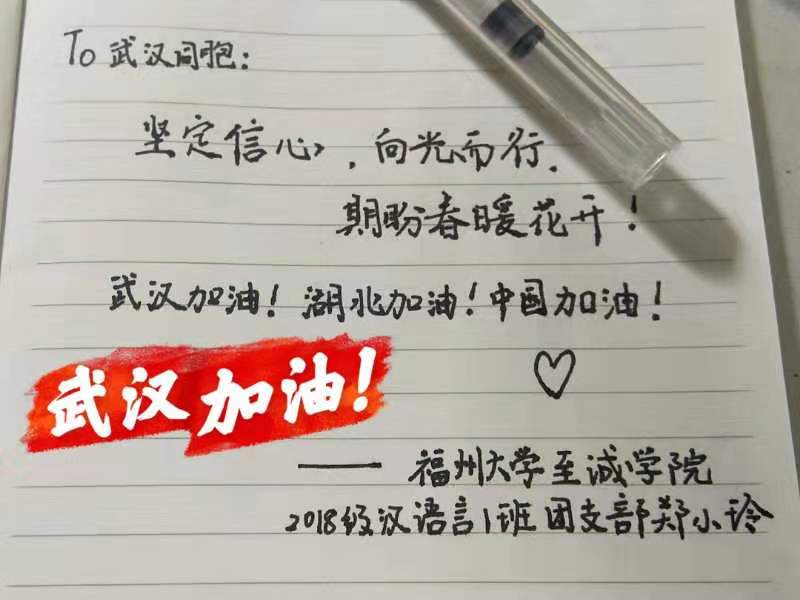 To 武汉同胞：
坚定信心，向光而行.
期盼春暖花开！
武汉加油！湖北加油！中国加油！
武汉加油！
—— 福州大学至诚学院
2018级汉语言1班团支部郑小玲